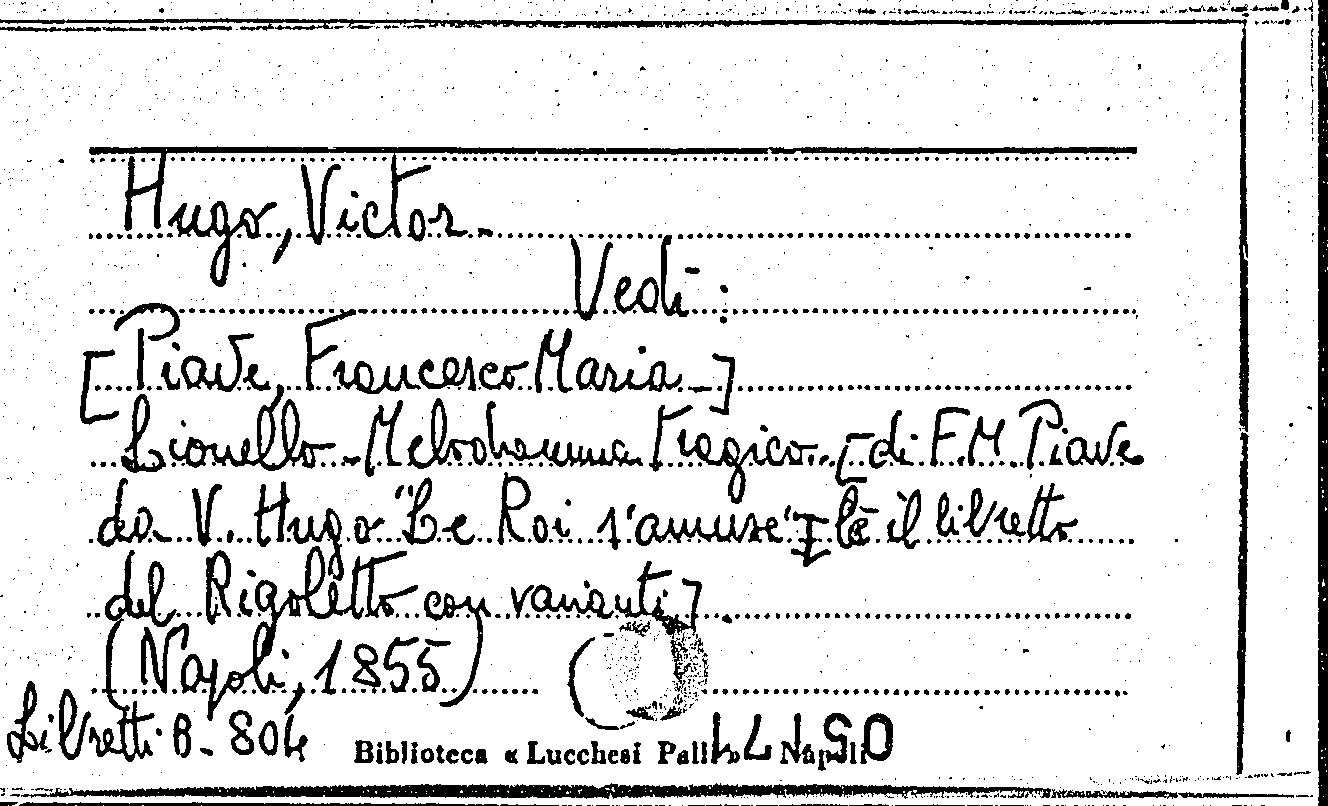 Hugo, Victor.-
Vedi:
[Piave, Francesco Maria-]
Lionello-Melodramma tragico. [di F.M. Piave
da V. Hugo "Le Roi s'amuse" è il libretto
del Rigoletto con varianti]
(Napoli, 1855)
Libretti B-804
Biblioteca « Lucchesi Palli » Napoli